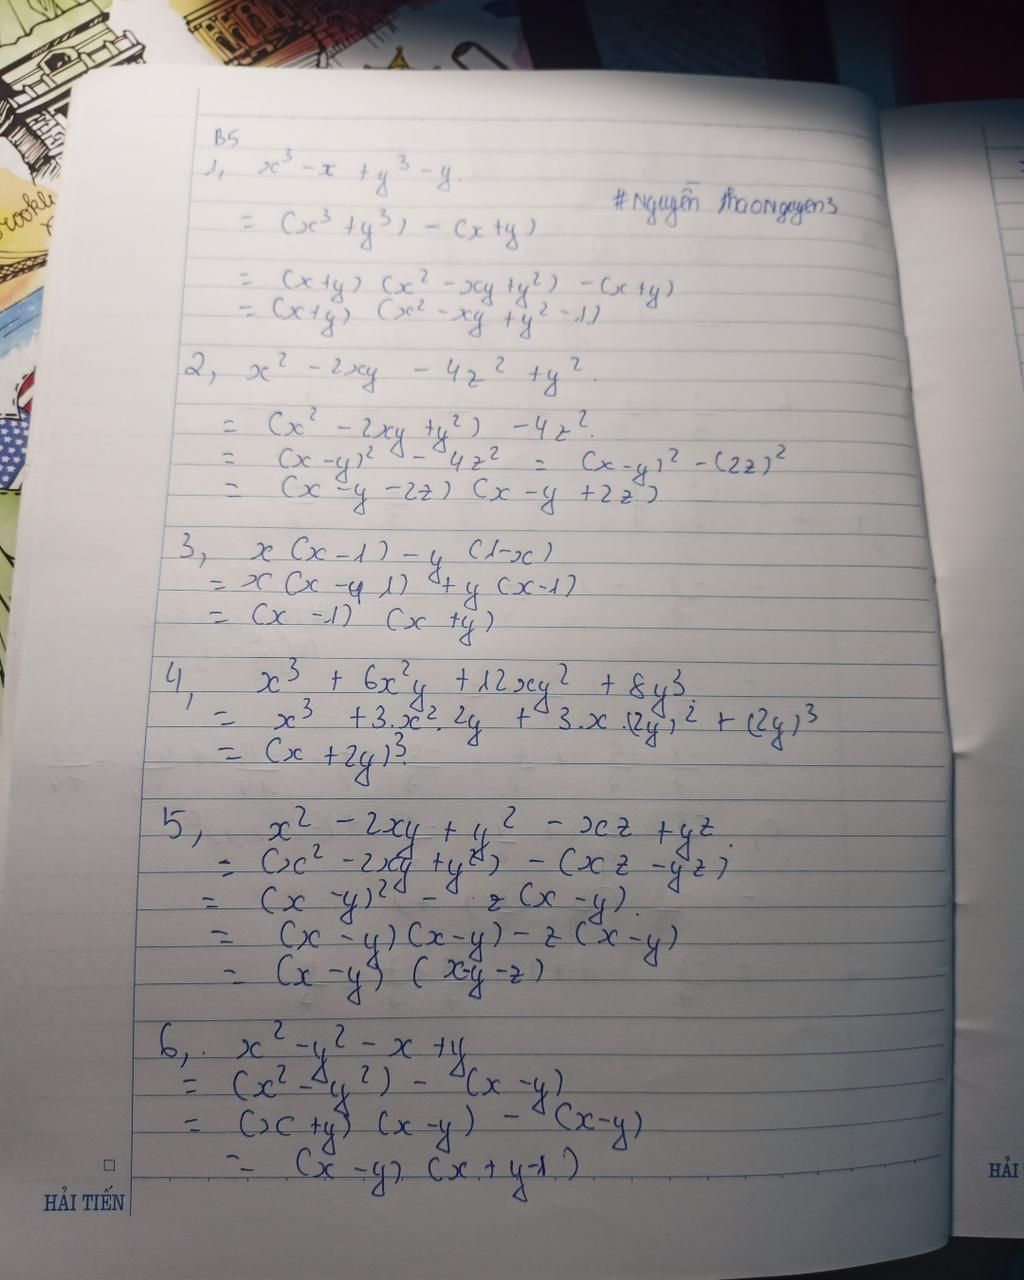 B5
1, x³ - x + y³ - y.
#Nguyễn ThaoNguyen3
= (x³ + y³) - (x + y)
= (x + y) (x² - xy + y²) - (x + y)
= (x + y) (x² - xy + y² - 1)
2, x² - 2xy - 4z² + y².
= (x² - 2xy + y²) - 4z².
= (x - y)² - 4z² = (x - y)² - (2z)²
= (x - y - 2z) (x - y + 2z)
3, x (x - 1) - y (1 - x)
= x (x - 1) + y (x - 1)
= (x - 1) (x + y)
4, x³ + 6x²y + 12xy² + 8y³.
= x³ + 3.x².2y + 3.x.(2y)² + (2y)³
= (x + 2y)³.
5, x² - 2xy + y² - xz + yz.
= (x² - 2xy + y²) - (xz - yz)
= (x - y)² - z (x - y).
= (x - y) (x - y) - z (x - y)
= (x - y) (x - y - z)
6, x² - y² - x + y
= (x² - y²) - (x - y)
= (x + y) (x - y) - (x - y)
= (x - y) (x + y - 1)
HẢI TIẾN
HẢI